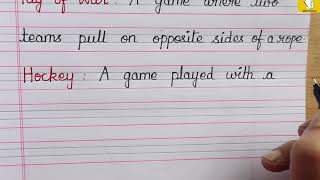 Tug of War : A game where two
teams pull on opposite sides of a rope
Hockey : A game played with a